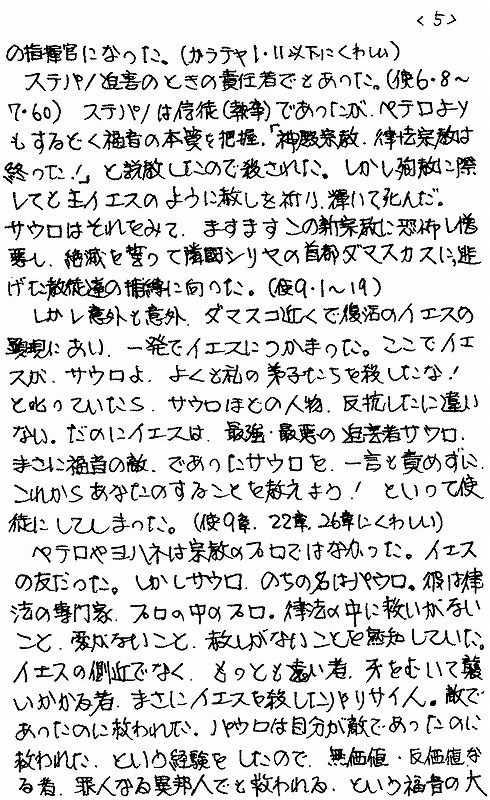 <5>
の指揮官になった。(ガラテヤ1・11以下にくわしい)
ステパノ迫害のときの責任者でもあった。(使6・8〜
7・60) ステパノは信徒(執事)であったが、ペテロより
もするどく福音の本質を把握、「神殿宗教、律法宗教は
終った!」と説教したので殺された。しかし殉教に際
しても主イエスのように赦しを祈り、輝いて死んだ。
サウロはそれをみて、ますますこの新宗教に恐怖し憎
悪し、絶滅を誓って隣国シリヤの首都ダマスカスに、逃
げた教徒達の捕縛に向った。(使9・1〜19)
しかし意外も意外、ダマスコ近くで復活のイエスの
顕現にあい、一発でイエスにつかまった。ここでイエ
スが、サウロよ、よくも私の弟子たちを殺したな!
と叱っていたら、サウロほどの人物、反抗したに違い
ない。だのにイエスは、最強・最悪の迫害者サウロ、
まさに福音の敵、であったサウロを、一言も責めずに、
これからあなたのすることを教えよう! といって使
徒にしてしまった。(使9章、22章、26章にくわしい)
ペテロやヨハネは宗教のプロではなかった。イエス
の友だった。しかしサウロ、のちの名はパウロ。彼は律
法の専門家、プロの中のプロ。律法の中に救いがない
こと、愛がないこと、赦しがないことを熟知していた。
イエスの側近でなく、もっとも遠い者、牙をむいて襲
いかかる者、まさにイエスを殺したパリサイ人。敵で
あったのに救われた。パウロは自分が敵であったのに
救われた、という経験をしたので、無価値・反価値な
る者、罪人なる異邦人でも救われる、という福音の大